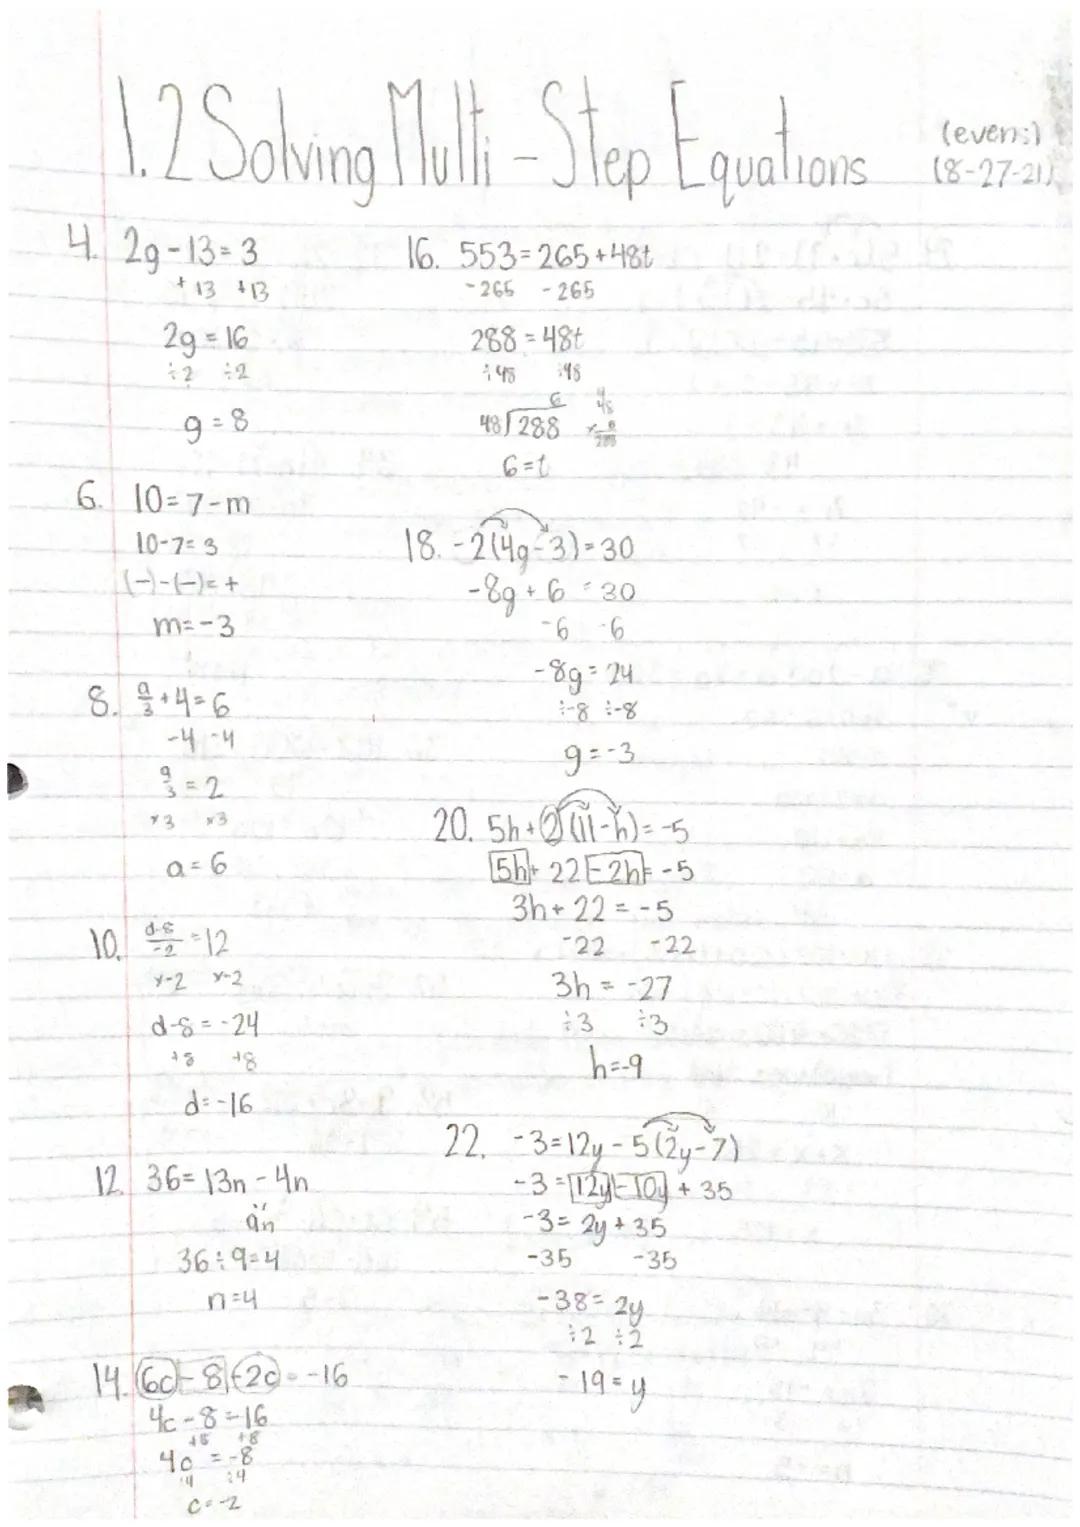 1.2 Solving Multi-Step Equations
(evens)
(8-27-21)
4. 2g-13=3
+13 +13
2g=16
÷2 ÷2
g=8
6. 10=7-m
10-7=3
(-)-(-)=+
m=-3
8. a/3+4=6
-4 -4
a/3=2
×3 ×3
a=6
10. d-8/-2=12
×-2 ×-2
d-8=-24
+8 +8
d=-16
12. 36=13n-4n
9n
36÷9=4
n=4
14. 6c-8-2c=-16
4c-8=-16
+8 +8
4c=-8
÷4 ÷4
c=-2
16. 553=265+48t
-265 -265
288=48t
÷48 ÷48
6
48)288
4
48
×6
288
6=t
18. -2(4g-3)=30
-8g+6=30
-6 -6
-8g=24
÷-8 ÷-8
g=-3
20. 5h+2(11-h)=-5
5h+22-2h=-5
3h+22=-5
-22 -22
3h=-27
÷3 ÷3
h=-9
22. -3=12y-5(2y-7)
-3=12y-10y+35
-3=2y+35
-35 -35
-38=2y
÷2 ÷2
-19=y